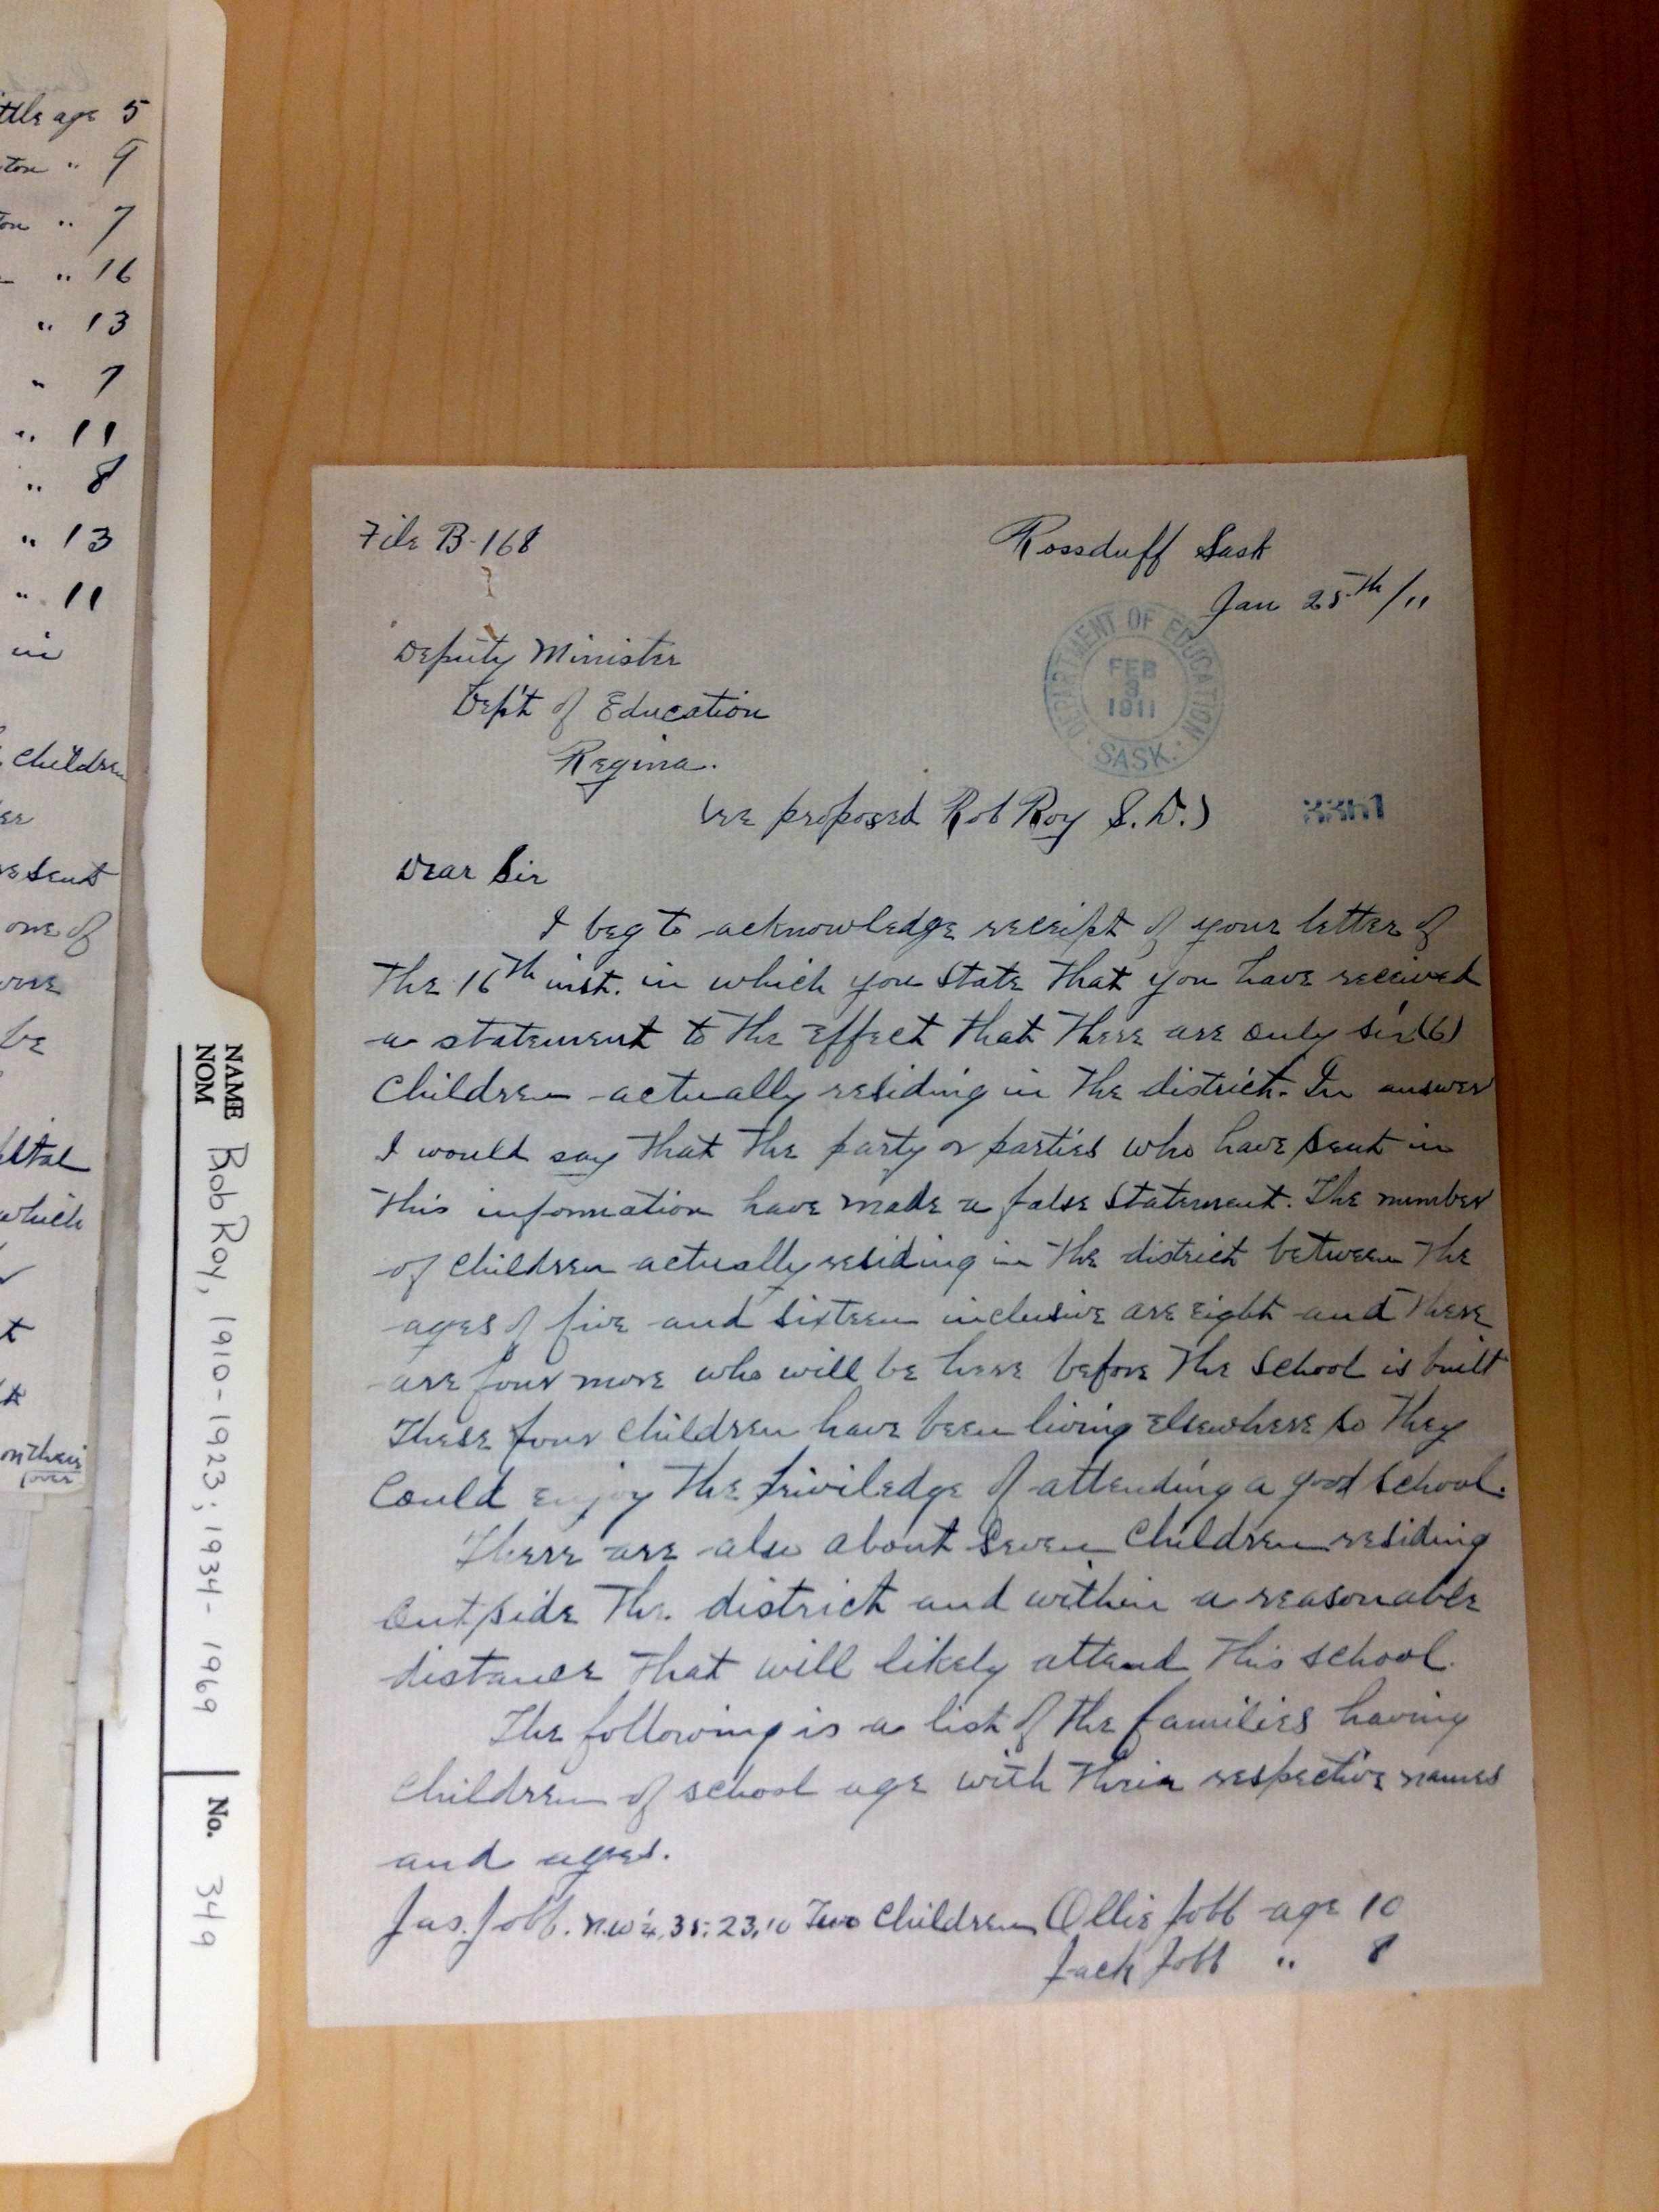 ttle age 5
ton " 9
ton " 7
" 16
" 13
" 7
" 11
" 8
" 13
" 11
in
children
er
resent
one of
be
which
t
on their
(over
NAME
NOM
Rob Roy, 1910-1923; 1934-1969
No. 349
File B-168
Rossduff Sask
Jan 25th/11
Deputy Minister
Dep't of Education
Regina.
DEPARTMENT OF EDUCATION
FEB
3
1911
SASK.
(re proposed Rob Roy S.D.)
Dear Sir
I beg to acknowledge receipt of your letter of
the 16th inst. in which you state that you have received
a statement to the effect that there are only six (6)
children actually residing in the district. In answer
I would say that the party or parties who have sent in
this information have made a false statement. The number
of children actually residing in the district between the
ages of five and sixteen inclusive are eight and there
are four more who will be here before the school is built
These four children have been living elsewhere so they
could enjoy the priviledge of attending a good school.
There are also about seven children residing
outside the district and within a reasonable
distance that will likely attend this school.
The following is a list of the families having
children of school age with their respective names
and ages.
Jas. Jobb. N.W¼, 35, 23, 10 Two Children Ollie Jobb age 10
Jack Jobb " 8